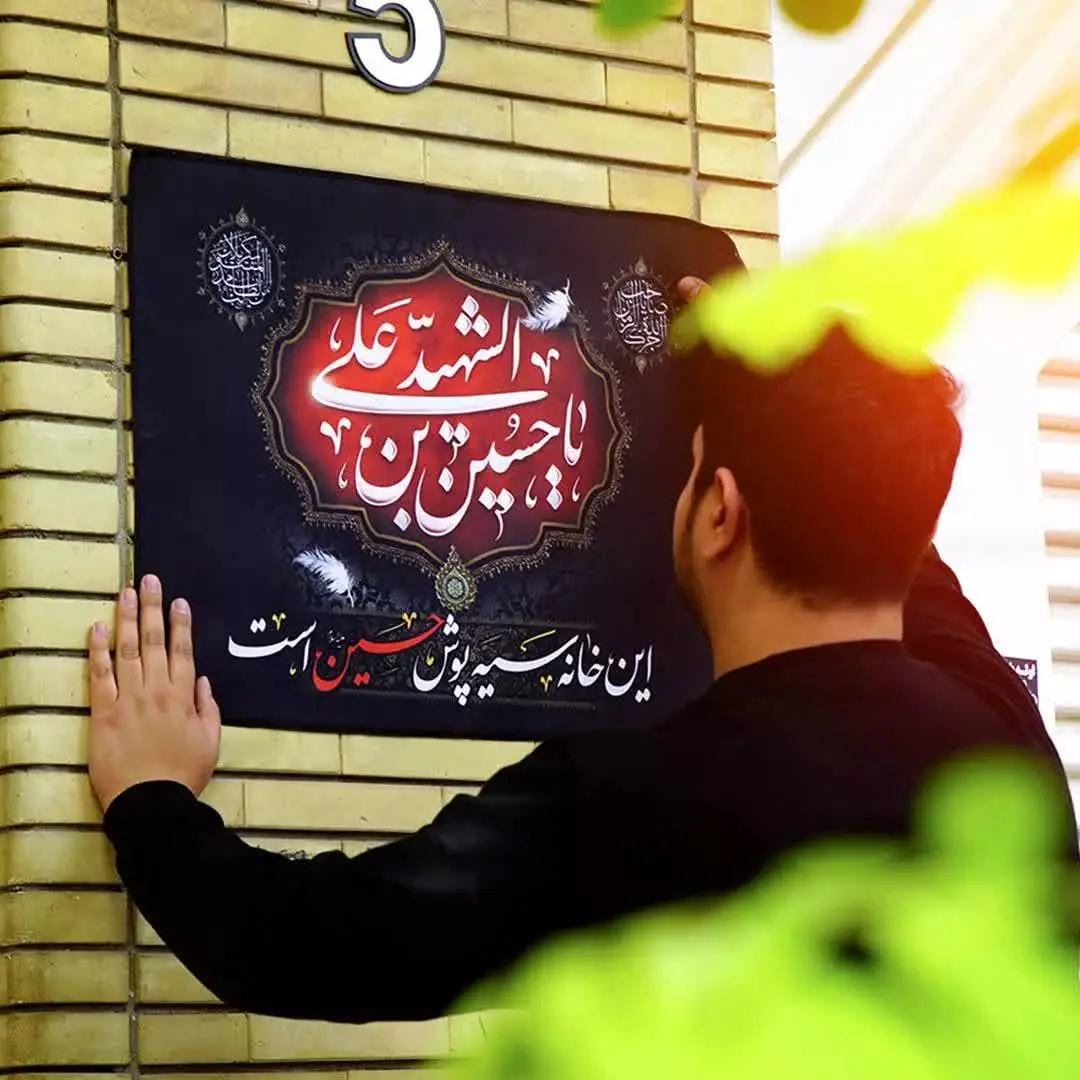 5
یا حسین بن
علی الشهید
این خانه سیه پوش حسین است